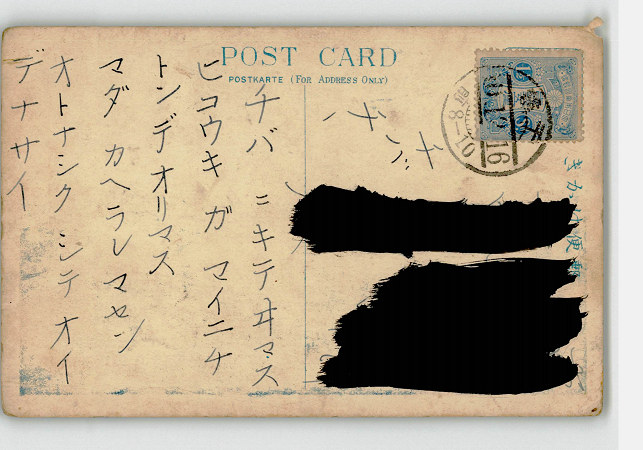 POST CARD
POSTKARTE (FOR ADDRESS ONLY)
チバ ニ キテ ヰマス
ヒコウキ ガ マイニチ
トンデ オリマス
マダ カヘラレマセン
オトナシク シテ オイ
デナサイ